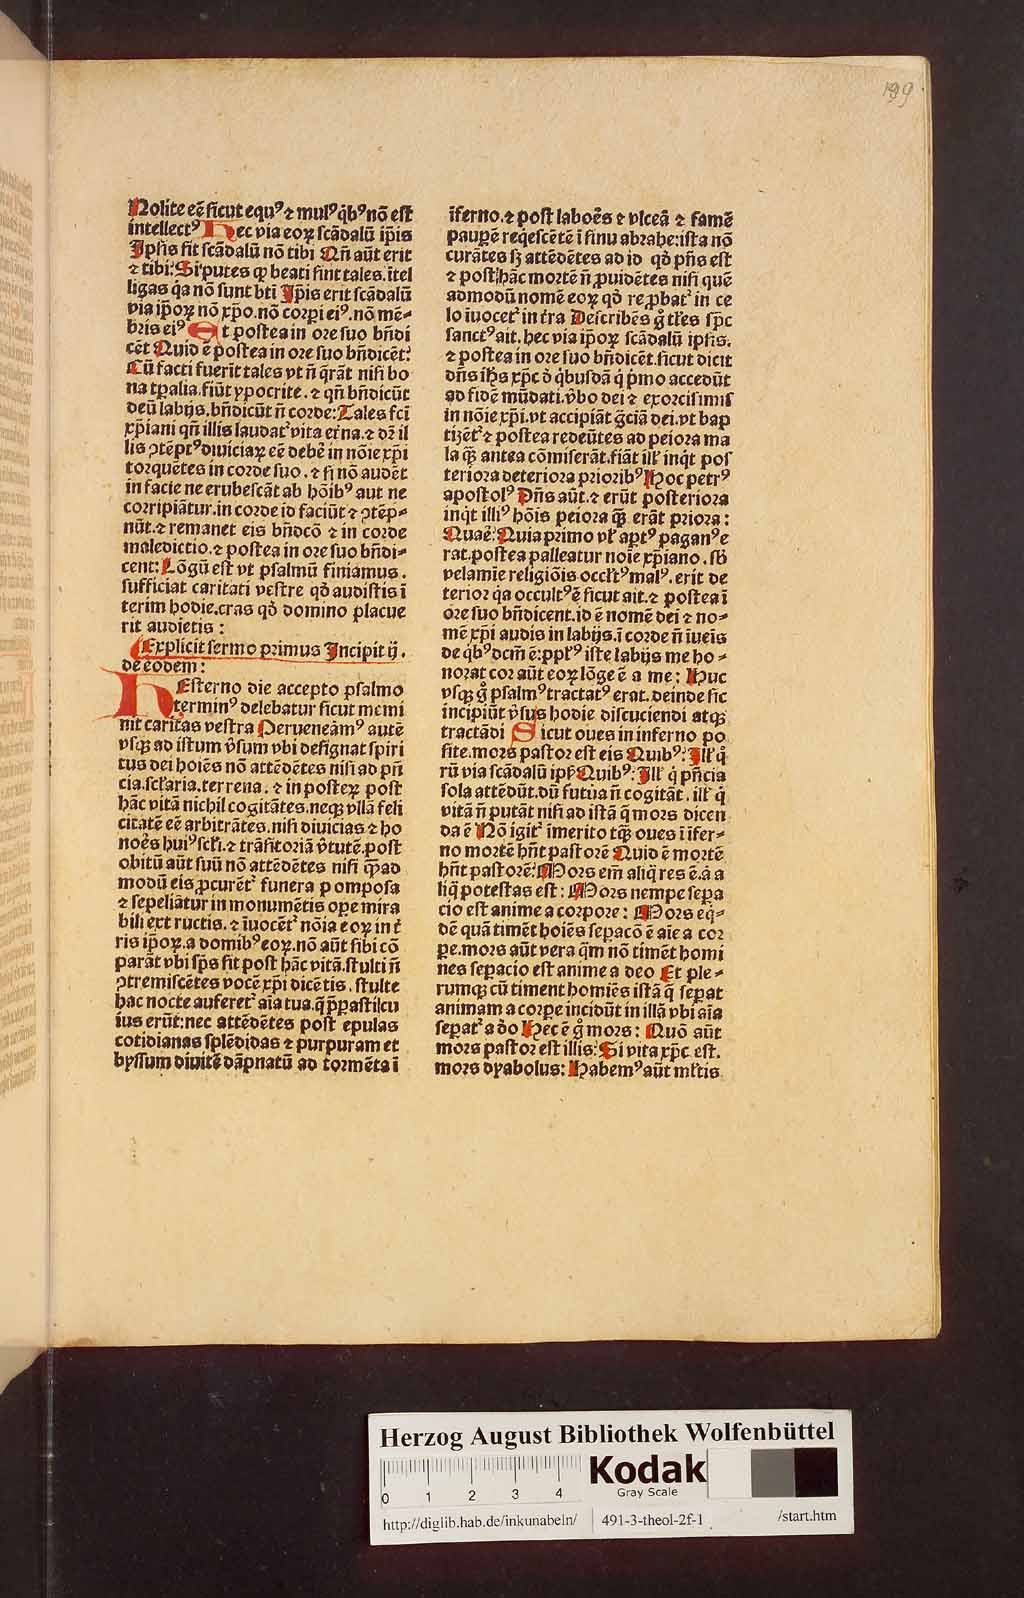 199
Nolite eē ſicut equꝰ ⁊ mulꝰ q̇bꝰ nō eſt
intellectꝰ Hec via eoꝝ ſcādalū ip̄is
Ip̄ſis ſit ſcādalū nō tibi Qn̄ aūt erit
⁊ tibi: Si putes ꝙ beati ſint tales. ītel
ligas q̇a nō ſunt btī Ip̄is erit ſcādalū
via ip̄oꝝ nō xp̄o. nō corp̄i eiꝰ. nō mē⸗
bris eiꝰ Et poſtea in ore ſuo bn̄di
cēt Quid ē poſtea in ore ſuo bn̄dicēt:
Cū facti fuerīt tales vt n̄ q̄rāt niſi bo
na tꝑalia. fiūt ypocrite. ⁊ qn̄ bn̄dicūt
deū labijs. bn̄dicūt n̄ corde: Tales fcī
xp̄iani qn̄ illis laudatᷣ vita et̄na. ⁊ dr̄ il
lis ꝯtēptꝰ diuiciaꝝ eē debē in nōīe xp̄i
torquētes in corde ſuo. ⁊ ſi nō audēt
in facie ne erubeſcāt ab hōībꝰ aut ne
corripiātur. in corde id faciūt ⁊ ꝯtēp⸗
nūt. ⁊ remanet eis bn̄dcō ⁊ in corde
maledictio. ⁊ poſtea in ore ſuo bn̄di⸗
cent: Lōgū eſt vt pſalmū finiamus.
ſufficiat caritati veſtre qđ audiſtis ī
terim hodie. cras qđ domino placue
rit audietis:
Explicit ſermo primus Incipit ij.
de eodem:
HEſterno die accepto pſalmo
terminꝰ delebatur ſicut memi
nit caritas veſtra Perueneāmꝰ autē
vſqꝫ ad iſtum v̄ſum vbi deſignat ſpiri
tus dei hoīēs nō attēdētes niſi ad pn̄
cia. ſcl̄aria. terrena. ⁊ in poſteꝝ poſt
hāc vitā nichil cogitātes. neqꝫ vllā feli
citatē eē arbitrātes. niſi diuicias ⁊ ho
noēs huiꝰ ſcl̄i. ⁊ trāſitoriā v̄tutē. poſt
obitū aūt ſuū nō attēdētes niſi qȝad
modū eis ꝓcurētᷣ funera pompoſa
⁊ ſepeliātur in monumētis ope mira
bili extructis. ⁊ īuocētᷣ nōīa eoꝝ in t̄
ris ip̄oꝝ. a domibꝰ eoꝝ. nō aūt ſibi cō
parāt vbi ſp̄s ſit poſt hāc vitā. ſtulti n̄
ꝯtremiſcētes vocē xp̄i dicētis. ſtulte
hac nocte auferetᷣ aīa tua. q̄ p̄paſti. cu
ius erūt: nec attēdētes poſt epulas
cotidianas ſplēdidas ⁊ purpuram et
byſſum diuitē dāpnatū ad tormēta ī
īferno. ⁊ poſt laboēs ⁊ vlceā ⁊ famē
pauꝑē reqeſcētē ī ſinu abrahe: iſta nō
curātes ſꝫ attēdētes ad id qđ pn̄s eſt
⁊ poſt hāc mortē n̄ ꝓuidētes niſi quē
admodū nomē eoꝝ qđ reꝓbatᷣ in ce
lo īuocetᷣ in t̄ra Deſcribēs g̊ tl̄es ſp̄c
ſanctꝰ ait. hec via ip̄oꝝ ſcādalū ip̄ſis.
⁊ poſtea in ore ſuo bn̄dicēt. ſicut dicit
dn̄s ih̄s xp̄c ð q̇buſdā q̇ ṗmo accedūt
ad fidē mūdati. v̄bo dei ⁊ exorciſimis
in nōīe xp̄i. vt accipiāt gr̄ciā dei. vt bap
tizētᷣ ⁊ poſtea redeūtes ad peiora ma
la qȝ antea cōmiſerāt. fiāt ill̓ inq̇t poſ
teriora deteriora prioribꝰ Hoc petrꝰ
apoſtolꝰ Dn̄s aūt. ⁊ erūt poſteriora
inq̇t illiꝰ hōīs peiora qȝ erāt priora:
Quaē: Quia primo vl̓ aptꝰ paganꝰ e
rat. poſtea palleatur noīe xp̄iano. ſb̄
velamīe religiōīs occl̓tꝰ malꝰ. erit de
terior q̇a occultꝰ ē ſicut ait. ⁊ poſtea ī
ore ſuo bn̄dicent. id ē nomē dei ⁊ no⸗
mē xp̄i audis in labijs. ī corde n̄ īueīs
de q̇bꝰ dcm̄ ē: ppl̓s iſte labijs me ho⸗
norat cor aūt eoꝝ lōge ē a me: Huc
vſqꝫ g̊ pſalmꝰ tractatꝰ erat. deinde ſic
incipiūt v̄ſus hodie diſcuciendi atqꝫ
tractādi Sicut oues in inferno po
ſite. mors paſtor eſt eis Quibꝰ: Ill̓ q̊
rū via ſcādalū ip̄ſ Quibꝰ: Ill̓ q̇ pn̄cia
ſola attēdūt. dū futūa n̄ cogitāt. ill̓ q̇
vitā n̄ putāt niſi ad iſtā q̄ mors dicen
da ē Nō igitᷣ īmerito tqȝ oues ī īfer⸗
no mortē hn̄t paſtorē Quid ē mortē
hn̄t paſtorē: Mors em̄ aliq̇ res ē. ā a
liq̇ poteſtas eſt: Mors nempe ſepa
cio eſt anime a corpore: Mors eq̇⸗
dē quā timēt hoīēs ſepacō ē aīe a cor
ꝑe. mors aūt vera q̄m nō timēt homi
nes ſepacio eſt anime a deo Et ple⸗
rumqꝫ cū timent homiēs iſtā q̄ ſepat
animam a corꝑe incidūt in illā vbi aīa
ſepatᷣ a ðo Hec ē g̊ mors: Quō aūt
mors paſtor eſt illis: Si vita xp̄c eſt.
mors dyabolus: Habemꝰ aūt ml̓tis
Herzog August Bibliothek Wolfenbüttel
0 1 2 3 4
Kodak
Gray Scale
http://diglib.hab.de/inkunabeln/ 491-3-theol-2f-1 /start.htm